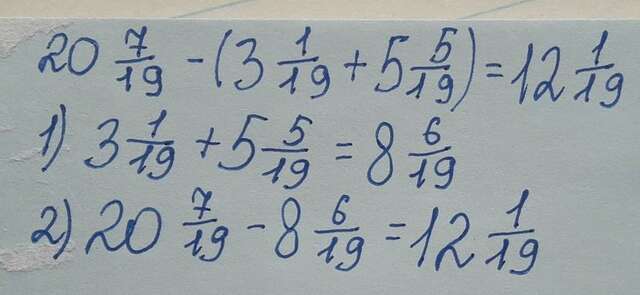 20 7/19 - (3 1/19 + 5 5/19) = 12 1/19
1) 3 1/19 + 5 5/19 = 8 6/19
2) 20 7/19 - 8 6/19 = 12 1/19